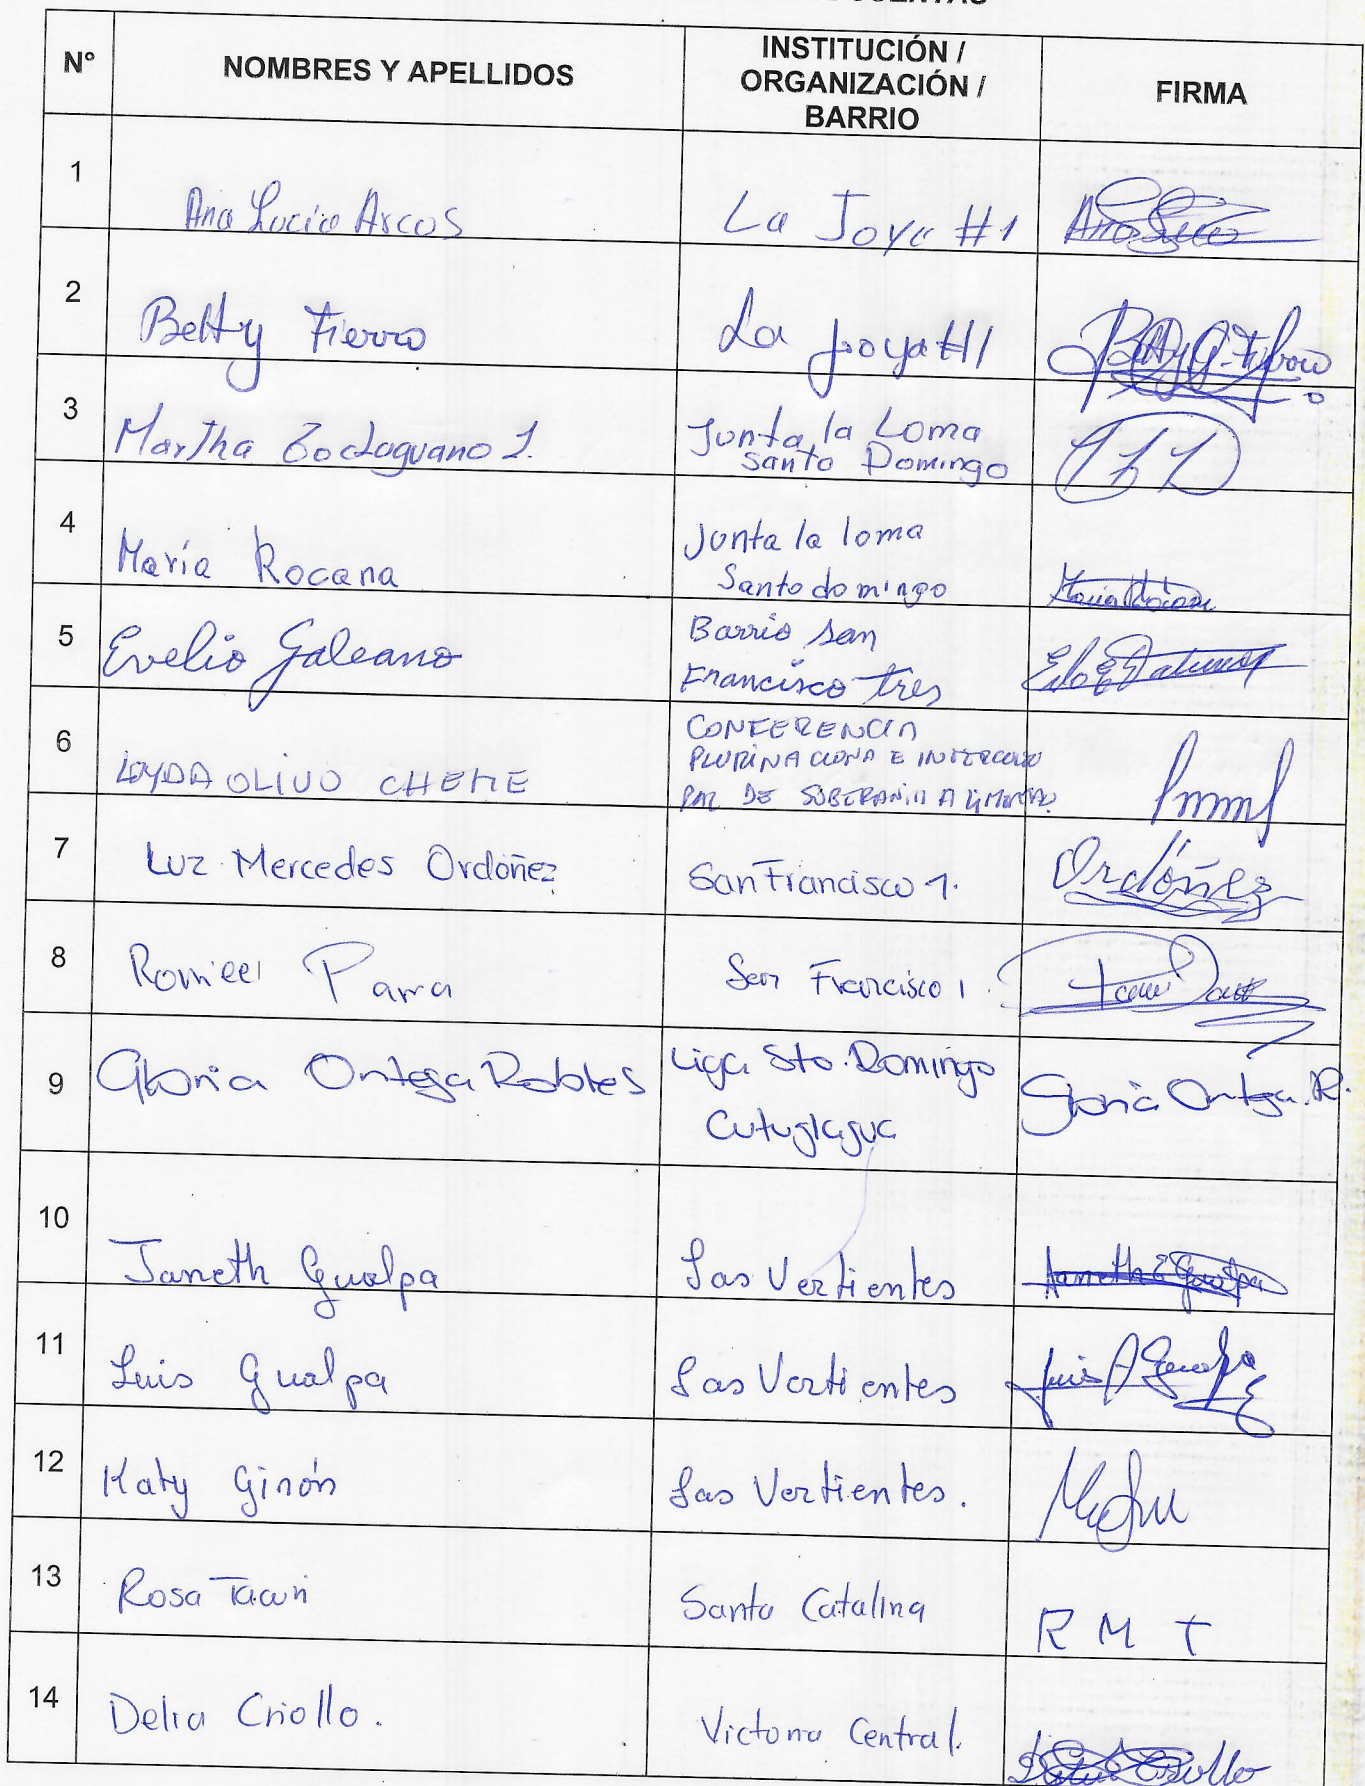 N° NOMBRES Y APELLIDOS INSTITUCIÓN / ORGANIZACIÓN / BARRIO FIRMA
1 Ana Lucia Arcos La Joya #1
2 Betty Fierro La joya #1
3 Martha L. Junta la Loma
Santo Domingo
4 María Rocana Junta la loma
Santo domingo
5 Evelio Galeano Barrio San
Francisco tres
6 LOYDA OLIVO CHEME CONFERENCIA
PLURINACIONA E INTERCULTU
RAL DE SOBERANIA ALIMENTA
7 Luz Mercedes Ordóñez San Francisco 1. Ordóñez
8 Parra San Francisco 1
9 Gloria Ortega Robles Liga Sto. Domingo Gloria Ortega R.
Cutuglagua
10 Janeth Gualpa Las Vertientes Janeth Gualpa
11 Luis Gualpa Las Vertientes Luis A Gualpa
12 Katy Girón Las Vertientes.
13 Rosa Tacuri Santa Catalina R M T
14 Delia Criollo. Victoria Central. Criollo